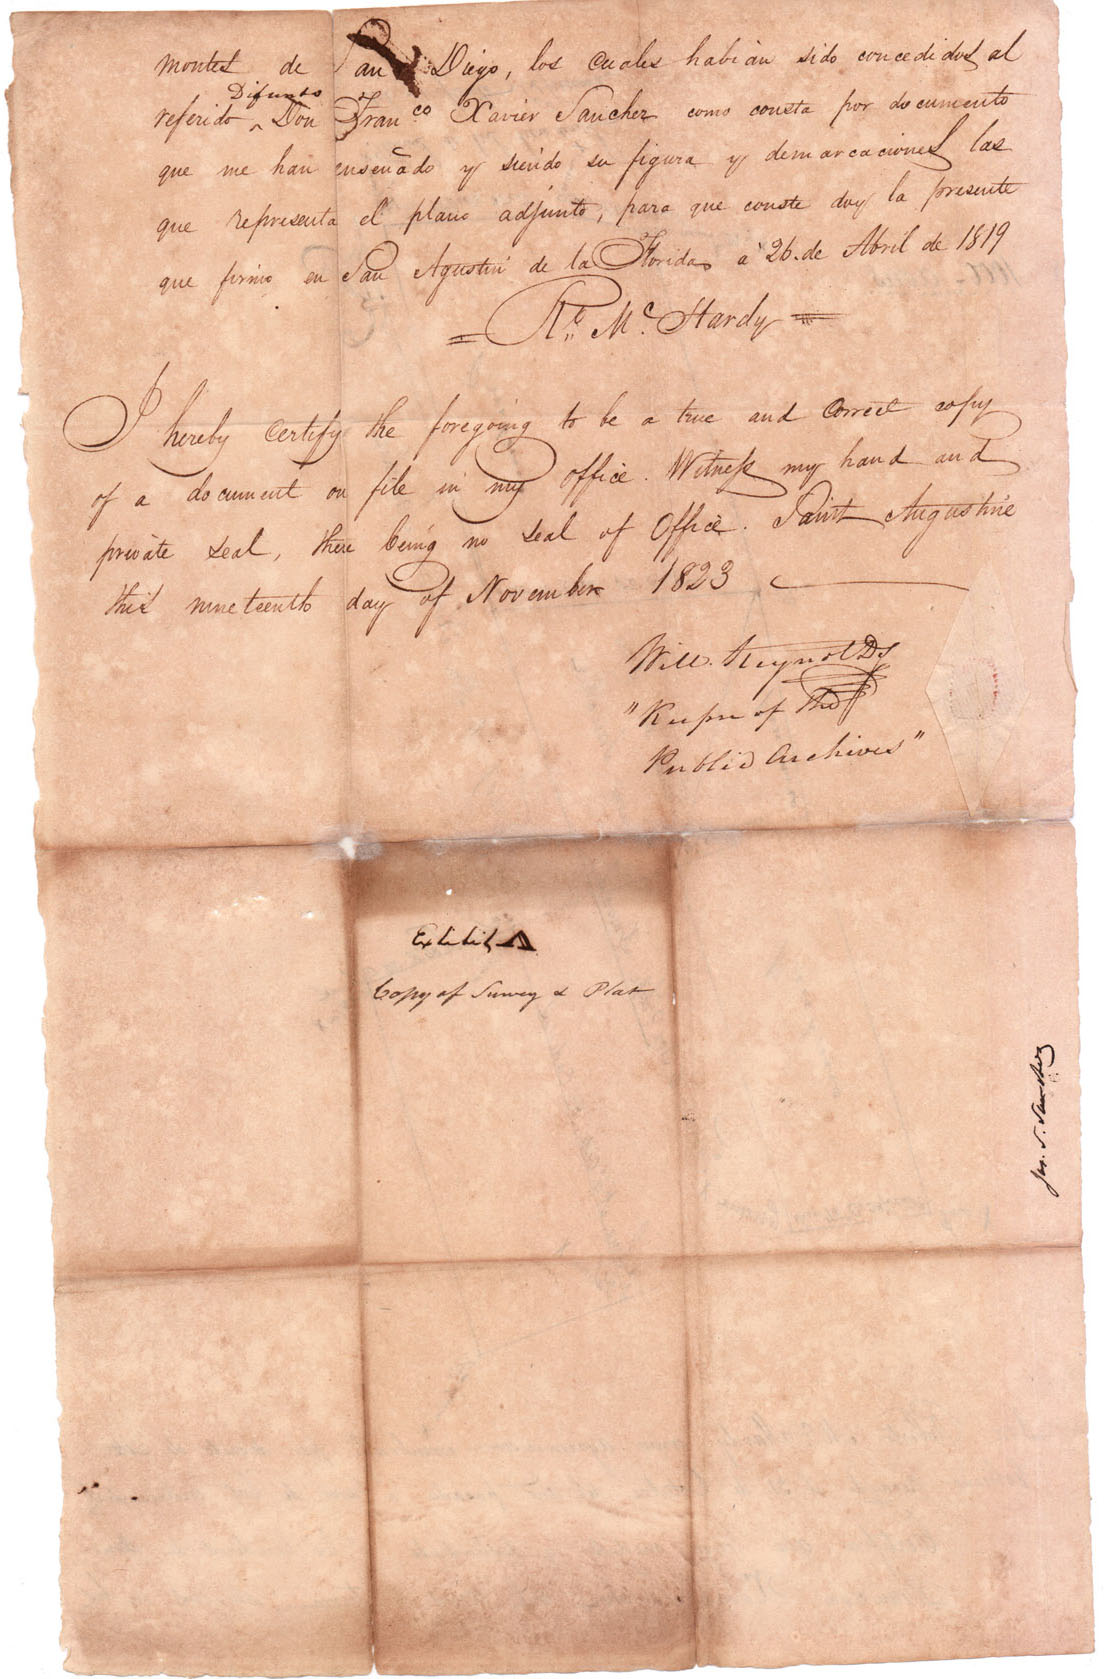 montes de San Diego, los cuales habian sido concedidos al
Difunto
referido ^ Don Franco Xavier Sanchez como consta por documento
que me han enseñado y siendo su figura y demarcaciones las
que representa el plano adjunto, para que conste doy la presente
que firmo en San Agustin de la Florida á 26 de Abril de 1819
= Rt. Mc. Hardy =
I hereby certify the foregoing to be a true and correct copy
of a document on file in my office. Witness my hand and
private seal, there being no seal of office. Saint Augustine
this nineteenth day of November 1823
Will. Reynolds
"Keeper of the
Public Archives"
Exhibit A
Copy of Survey & Plat
Jos. S. Sanchez